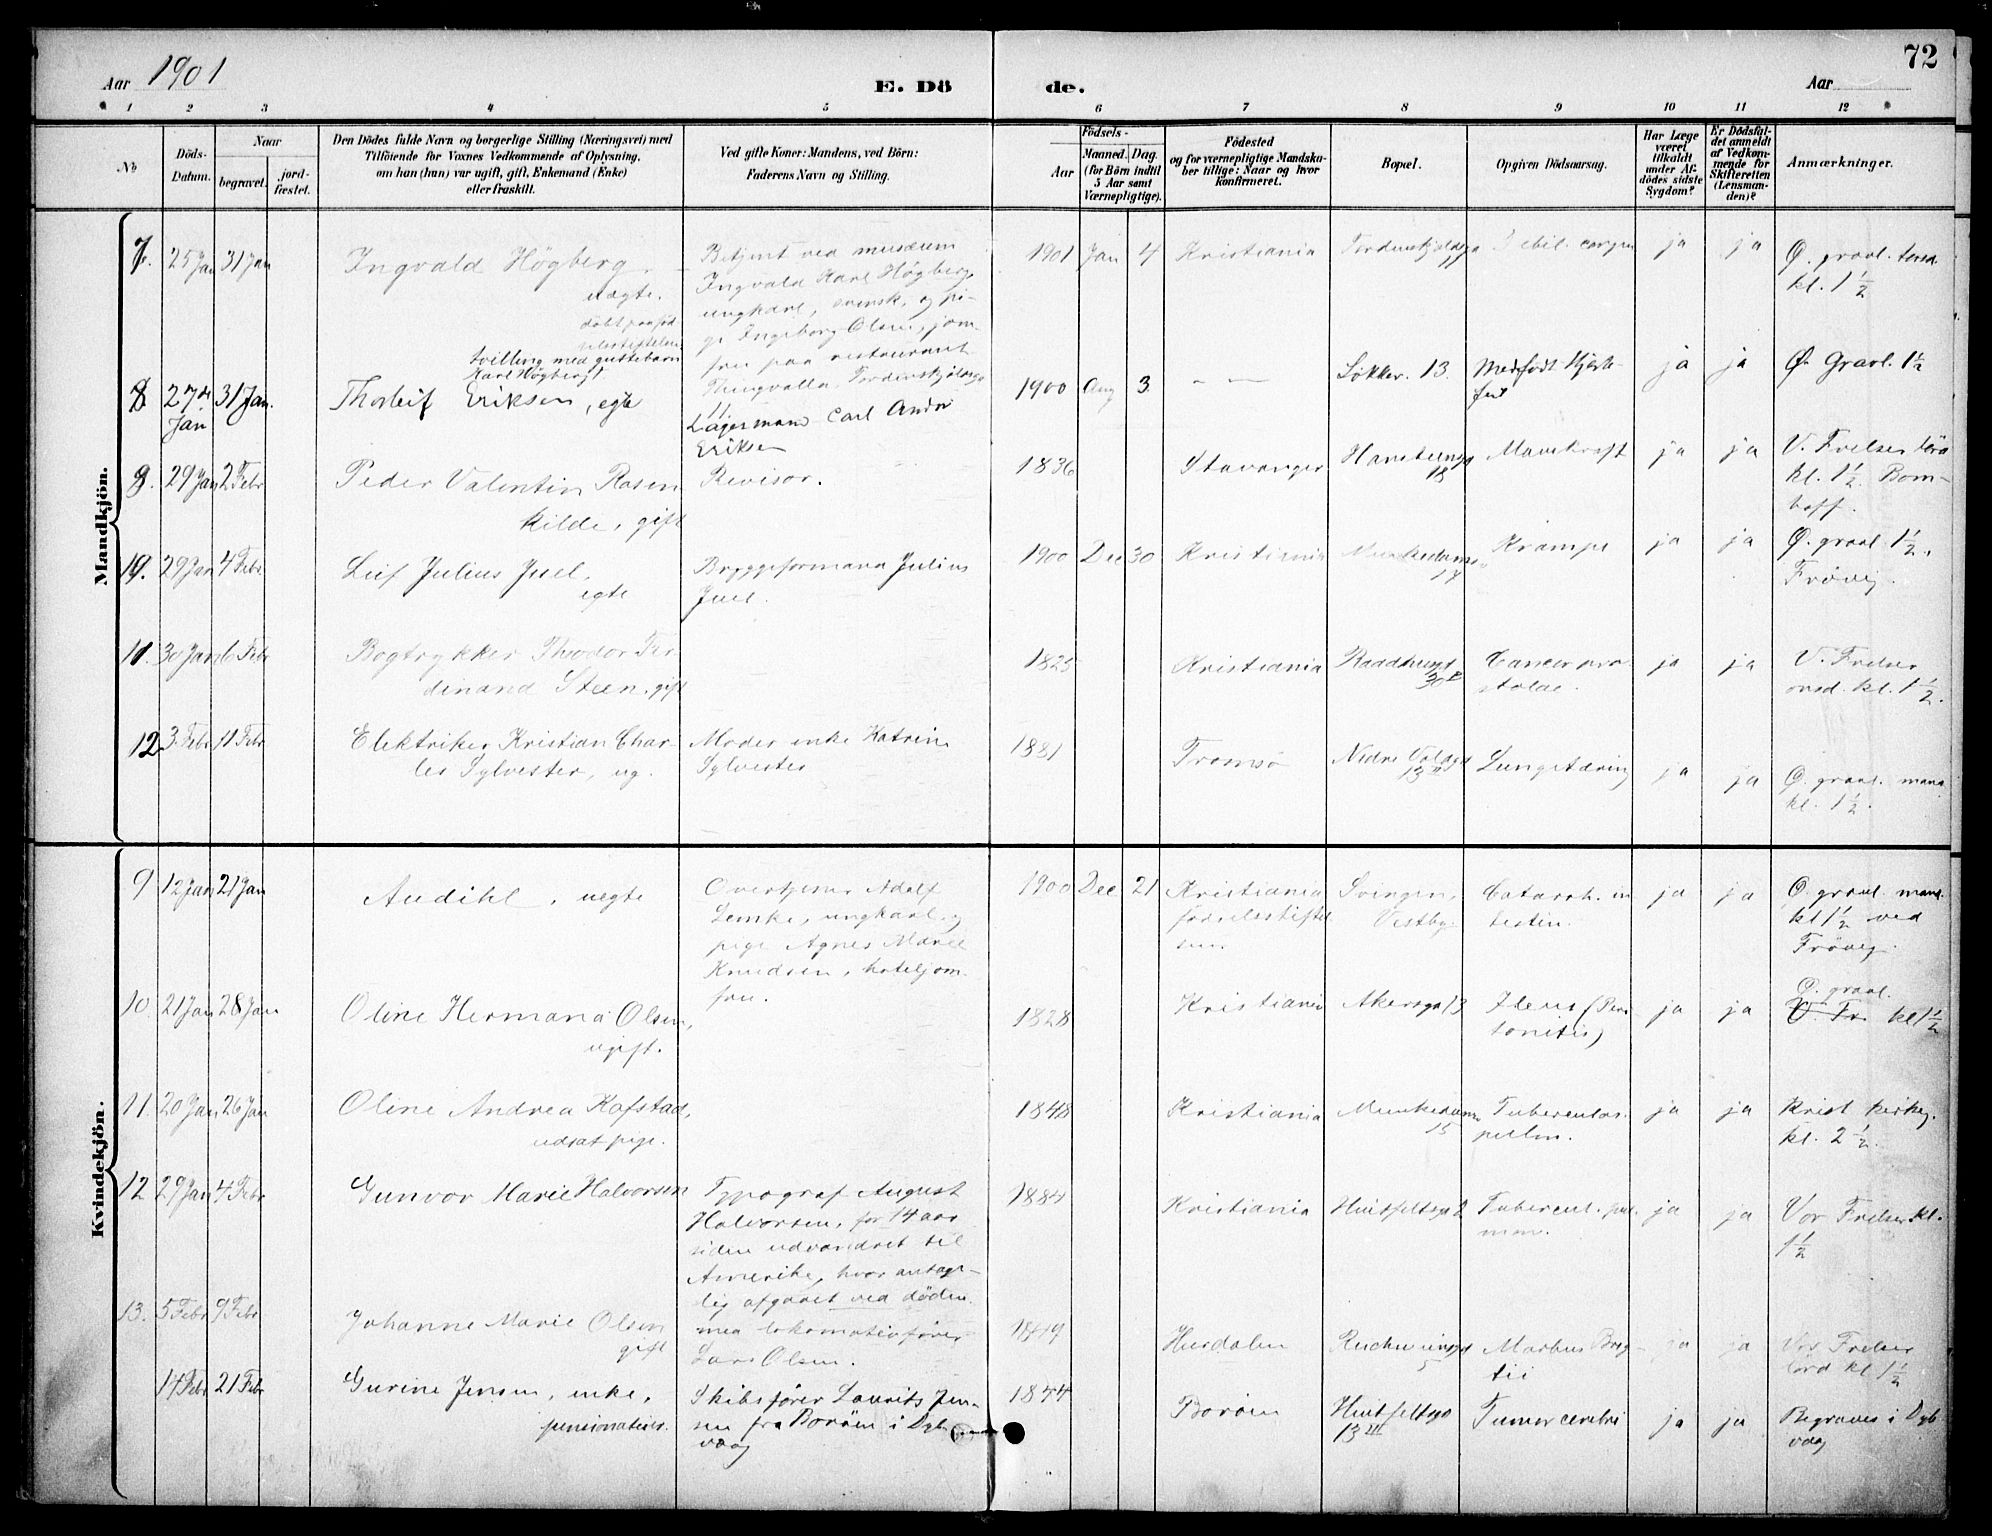 72
Aar 1901
E. Dö
de.
Aar
1 2 3 4 5 6 7 8 9 10 11 12
No
Döds-Datum.
Naar
begravet.
jord-fæstet.
Den Dödes fulde Navn og borgerlige Stilling (Næringsvei) med
Tilföiende for Voxnes Vedkommende af Oplysning,
om han (hun) var ugift, gift, Enkemand (Enke)
eller fraskilt.
Ved gifte Koner: Mandens, ved Börn:
Faderens Navn og Stilling.
Födsels-
Aar
Maaned. Dag.
(for Börn indtil
5 Aar samt
Værnepligtige).
Födested
og for værnepligtige Mandska-
ber tillige: Naar og hvor
konfirmeret.
Bopæl.
Opgiven Dödsaarsag.
Har Læge
været
tilkaldt
under Af-
dödes sidste
Sygdom?
Er Dödsfal-
det anmeldt
af Vedkom-
mende for
Skifteretten
(Lensman-
den)?
Anmærkninger.
Mandkjön.
7. 25 Jan 31 Jan
Ingvald Högberg
uægte.
tvilling med guttebarn
Karl Högberg
Betjent ved musæum
Ingvald Karl Högberg,
ungkarl, svensk, og pi-
ge Ingeborg Olsen, jom-
fru paa restaurant
Thingvalla, Tordenskjoldsg
11
1901 Jan 4 Kristiania Tordenskjoldsg 11 ja ja Ø. gravl. torsd.
kl. 1 1/2
8 27de Jan 31 Jan.
Thorleif Eriksen, egte
Lagermand Carl
Eriksen
1900 Aug 3 — — Løkkev. 13. Medfödt Hjerte-
feil
ja ja Ø. Gravl. 1 1/2
9. 29 Jan 2 Febr
Peder Valentin Rosen
kilde, gift
Revisor.
1836 Stavanger 18 ja ja V. Frelser
kl. 1 1/2. Bom-
hoff.
10. 29 Jan 4 Febr
Leif Julius Juel,
egte
Bryggeformand Julius
Juel.
1900 Dec 30 Kristiania Munkedamsv. 17 Krampe ja ja Ø. gravl. 1 1/2,
Frövig.
11. 30 Jan 6 Febr
Bogtrykker Theodor Fer
dinand Steen, gift
1825 Kristiania Raadhusgd 30 Cancer
ja ja V. Frelser
onsd. kl. 1 1/2.
12 3 Febr 11 Febr
Elektriker Kristian Char-
les Sylvester, ug.
Moder enke Katrine
Sylvester
1881 Tromsö Nedre Voldgd 13 II Lungetæring ja ja Ø. gravl. mand
kl. 1 1/2.
Kvindekjön.
9 12 Jan 21 Jan
Audihl, uegte
Adolf
Lemke, ungkarl, og
pige Agnes Marie
Knudsen, hoteljom-
fru.
1900 Dec 21 Kristiania
födselsstiftel
sen.
Svingen,
Vestby.
Catarrh. in
testin.
ja ja Ø. gravl. mand.
kl 1 1/2 ved
Frövig.
10. 21 Jan 28 Jan
Oline Hermana Olsen,
ugift.
1828 Kristiania Akersga 13 Ileus (Peri
tonitis)
ja ja Ø. gravl.
V. Fr. kl 1 1/2
11. 20 Jan 26 Jan
Oline Andrea Kafstad,
pige.
1848 Kristiania Munkedamsv 15 Tuberculos.
pulm.
ja ja Krist kirkeg.
kl. 2 1/2.
12 29 Jan 4 Febr
Gunvor Marie Halvorsen
Typograf August
Halvorsen, for 14 aar
siden udvandret til
Amerika, hvor antage-
lig afgaaet ved döden.
1884 Kristiania Huitfeltsga 2 Tubercul. pul-
mon.
ja ja Vor Frelser kl.
1 1/2
13. 5 Febr 9 Febr
Johanne Marie Olsen
gift
med lokomotivförer
Lars Olsen.
1849 Hurdalen 5 Morbus Brig-
tii
ja ja Vor Frelser
lörd kl 1 1/2
14 Febr 21 Febr
Gurine Jensen, enke,
Skibsförer Laurits Jen-
sen fra Boröen i Dyb
vaag
1844 Boröen Huitfeltsga
13 III
Tumor cerebri ja ja Begraves i Dyb
vaag